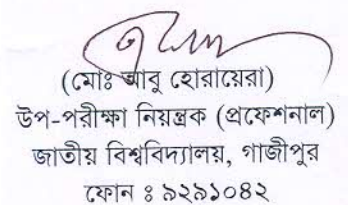 (মোঃ আবু হোরায়েরা)
উপ-পরীক্ষা নিয়ন্ত্রক (প্রফেশনাল)
জাতীয় বিশ্ববিদ্যালয়, গাজীপুর
ফোন ঃ ৯২৯১০৪২